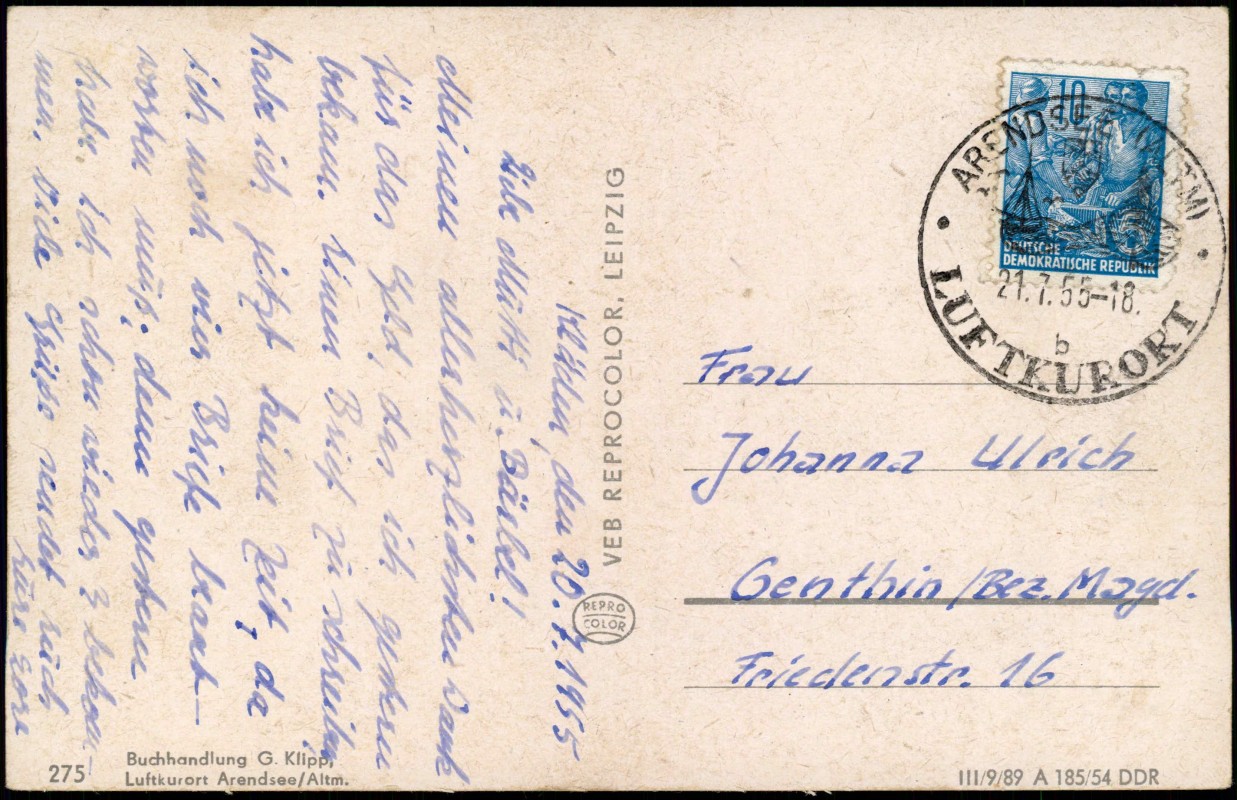 Kläden, den 20.7.1955
Liebe Mutti u. Bärbel!
Meinen allerherzlichsten Dank
für das Geld, das ich gestern
bekam. Einen Brief zu schreiben
habe ich jetzt keine Zeit, da
ich noch vier Briefe beant-
worten muß; denn gestern
habe ich schon wieder 3 bekom-
men. Viele Grüße sendet Euch
Eure
VEB REPROCOLOR, LEIPZIG
REPRO
COLOR
10
DEUTSCHE
DEMOKRATISCHE REPUBLIK
ARENDSEE (ALTM)
21.7.55-18.
b
LUFTKURORT
Frau
Johanna Ulrich
Genthin/Bez. Magd.
Friedenstr. 16
275
Buchhandlung G. Klipp,
Luftkurort Arendsee/Altm.
III/9/89 A 185/54 DDR